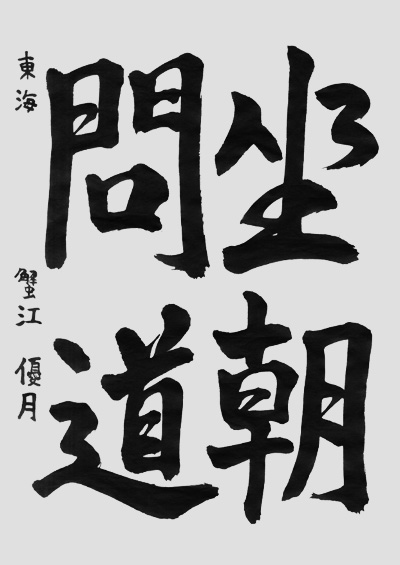 坐朝
問道
東海 蟹江 優月